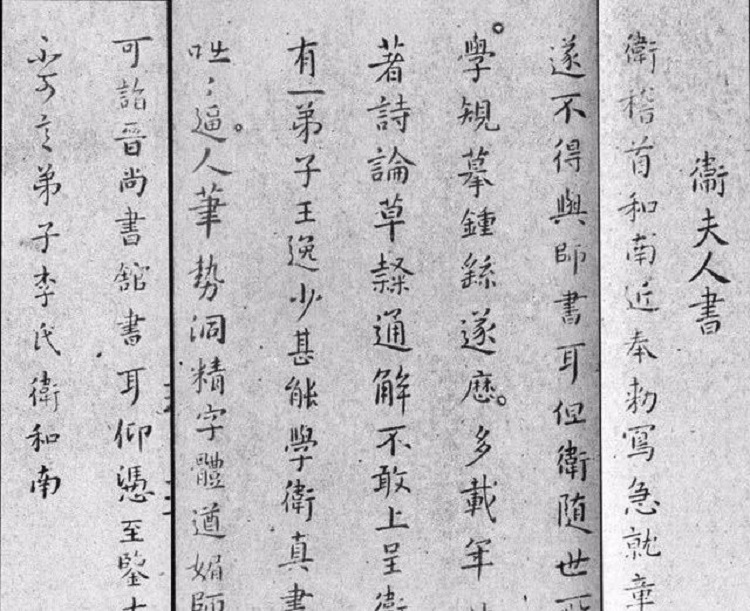 衞夫人書
衛稽首和南近奉勑寫急就章
遂不得與師書耳但衛随世所
學規摹鍾繇遂歷多載年
著詩論草隷通解不敢上呈衛
有一弟子王逸少甚能學衛真書
咄〻逼人筆勢洞精字體遒媚師
可詣晋尚書舘書耳仰憑至鑒大
不可言弟子李氏衛和南